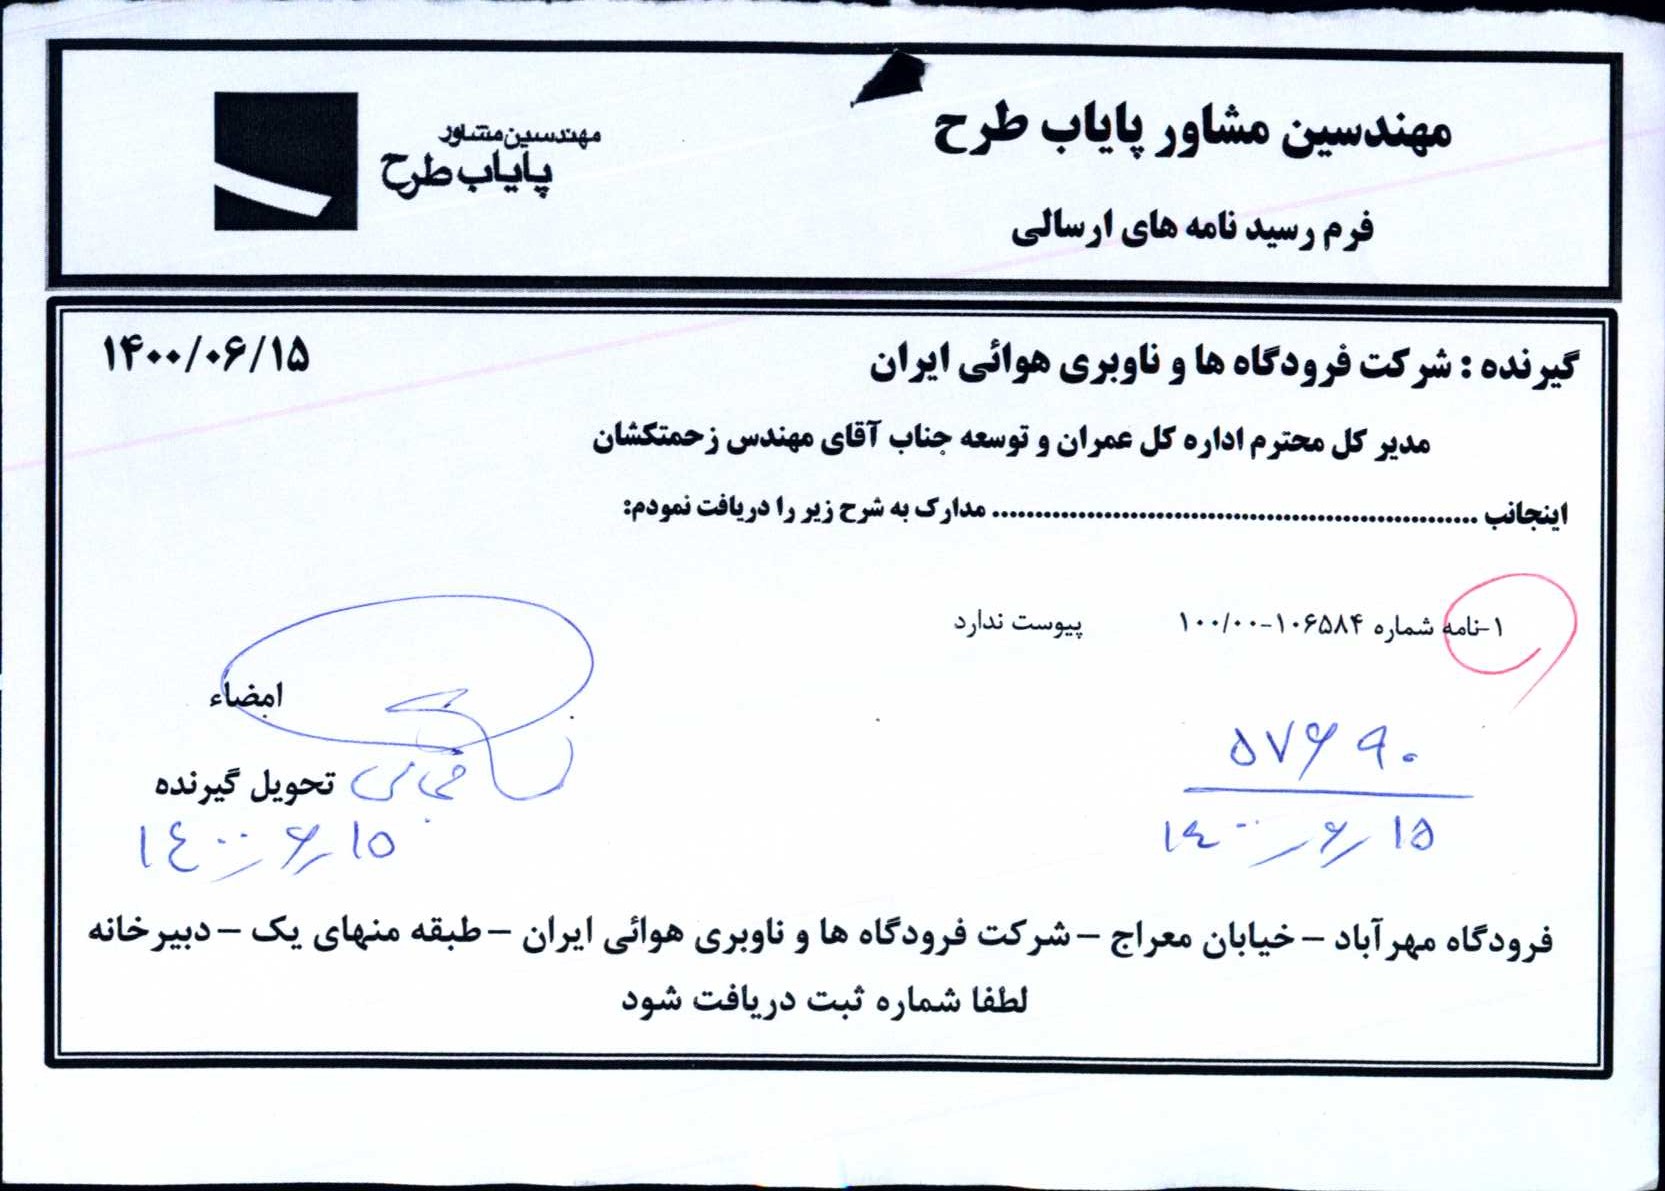 مهندسین مشاور پایاب طرح
مهندسین مشاور
پایاب طرح
فرم رسید نامه های ارسالی
گیرنده : شرکت فرودگاه ها و ناوبری هوائی ایران
۱۴۰۰/۰۶/۱۵
مدیر کل محترم اداره کل عمران و توسعه جناب آقای مهندس زحمتکشان
اینجانب ........................................................ مدارک به شرح زیر را دریافت نمودم:
۱-نامه شماره ۱۰۰/۰۰-۱۰۶۵۸۴ پیوست ندارد
امضاء
۵۷۶۹۰
تحویل گیرنده
۱۴۰۰/۶/۱۵
۱۴۰۰/۶/۱۵
فرودگاه مهرآباد – خیابان معراج – شرکت فرودگاه ها و ناوبری هوائی ایران – طبقه منهای یک – دبیرخانه
لطفا شماره ثبت دریافت شود